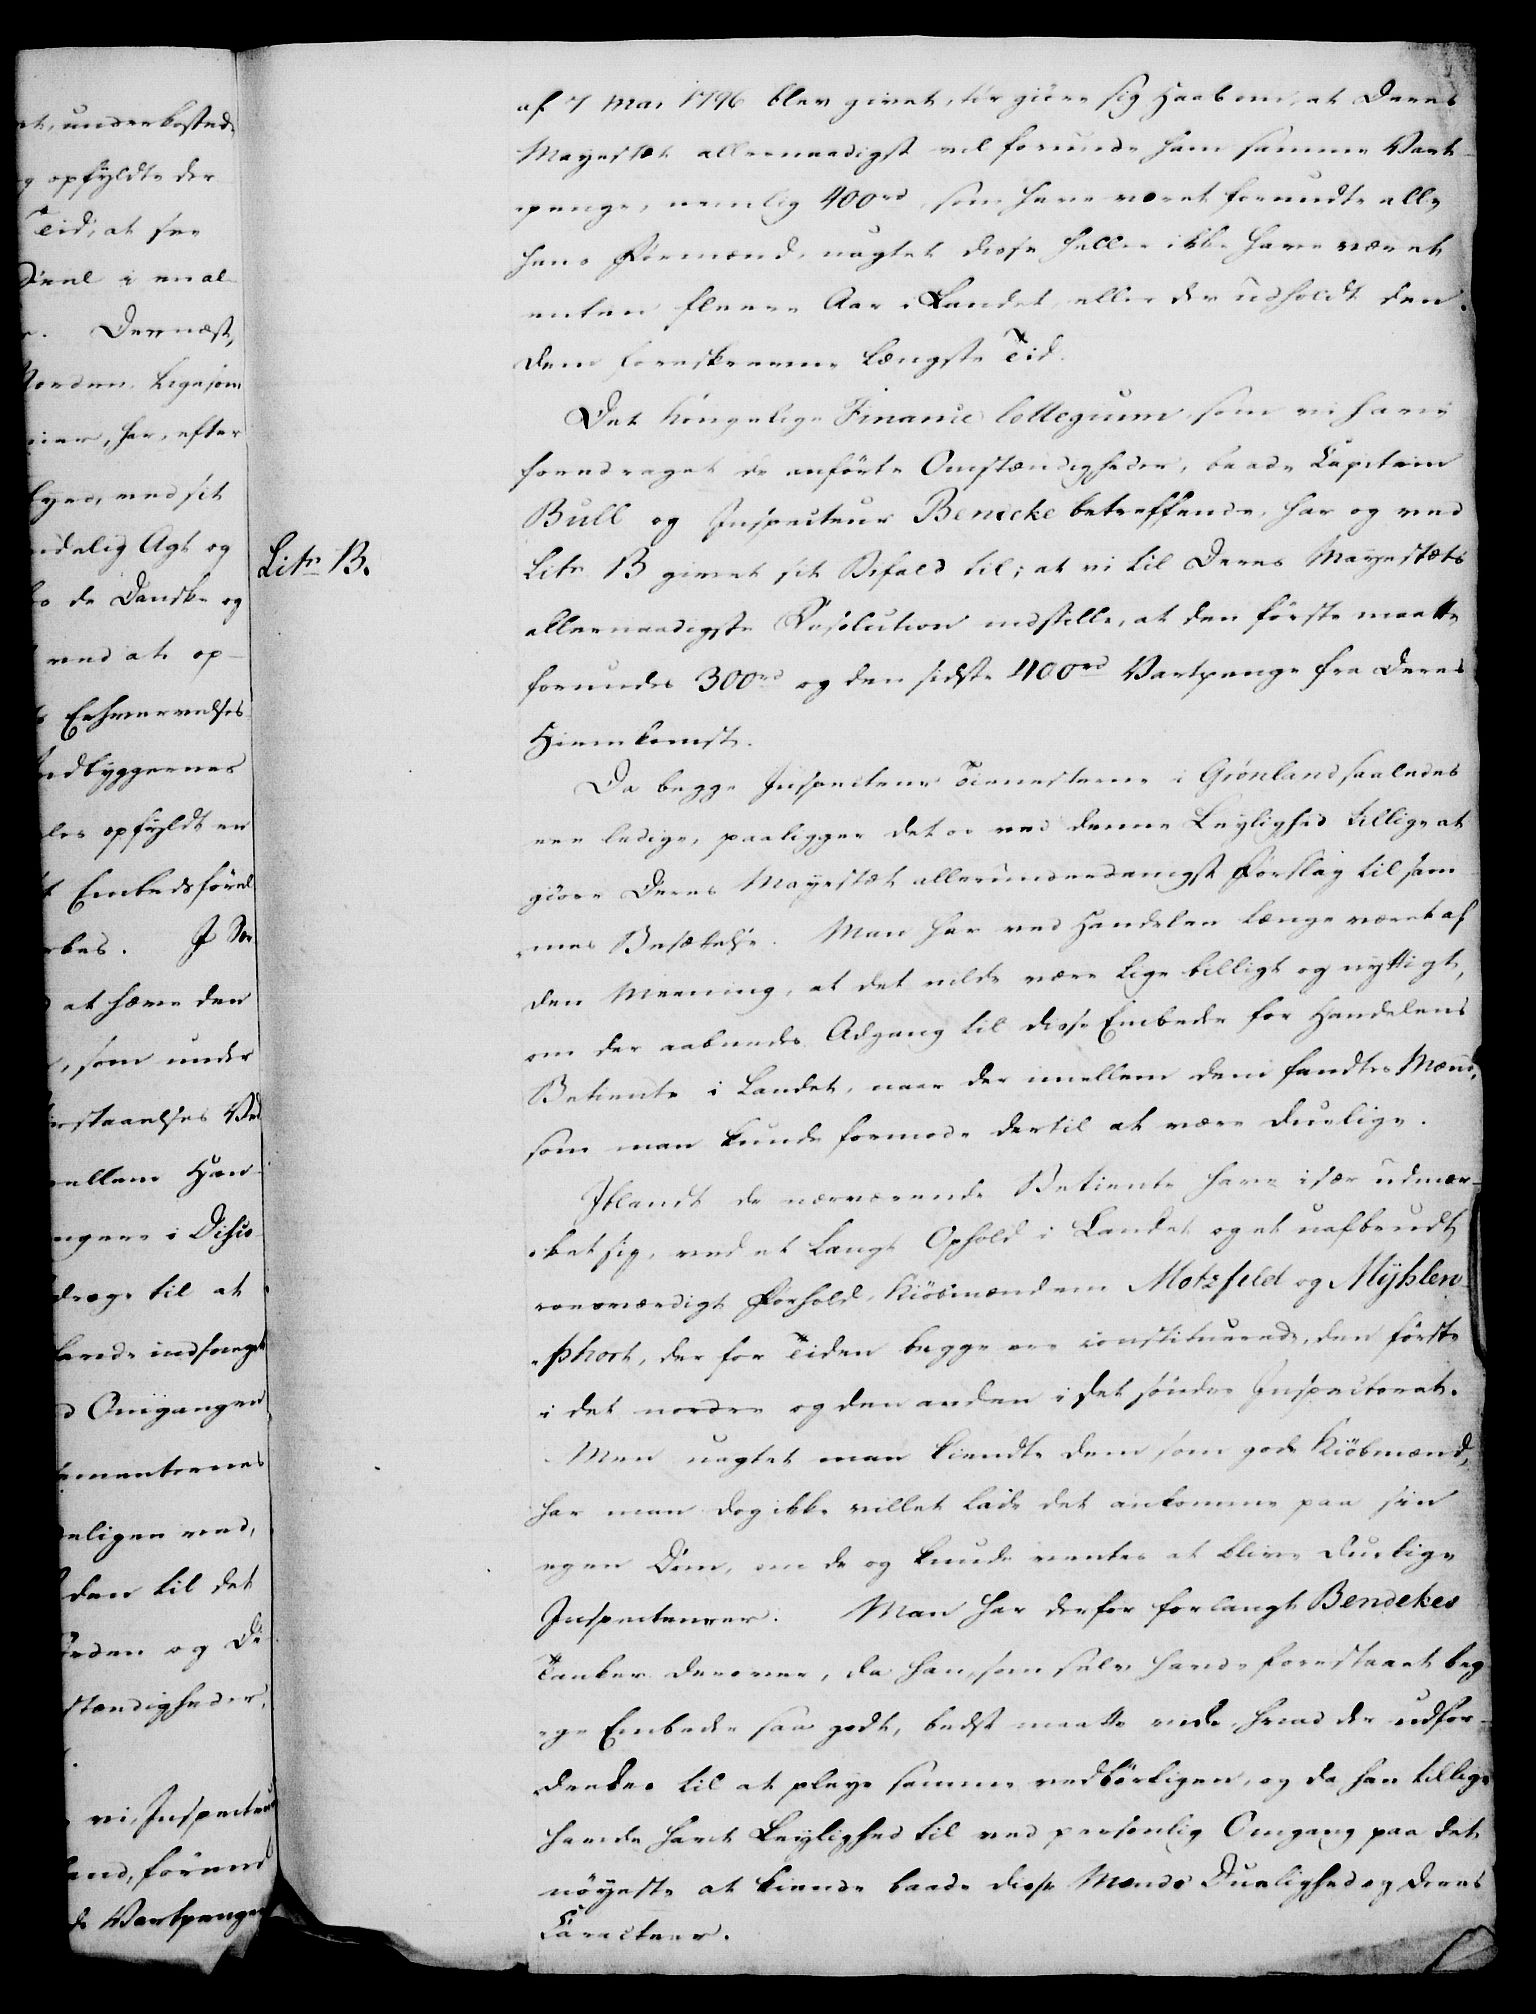 et, underkastede
g opfyldte der
Tid, at see
Deel i en al
r. Dernæst,
Norden. Ligesom
nier, har, efter
byes, ved sit
ndelig Agt og
os de Danske og
ved at op-
s Erhvervelses
Indbyggernes
les opfyldt en
t Embedsførel
rkes. I Sær
at hæve den
, som under
rstaaelses Ved
ellem Han-
ngere i Disco
drage til at
lande indsneget
d Omgangen
ementernes
eligen ved,
den til det
orden og Di
stændigheder,
vi, Inspecteur
land, førend
de Vartpenge
Litr B.
af 7 Mai 1796 blev givet, tør giøre sig Haab om, at Deres
Mayestæt allernaadigst vil forunde ham samme Vart-
penge, nemlig 400 rd, som have været forundte alle
hans Formænd, uagtet disse heller ikke have været
enten fleere Aar i Landet, eller der udholdt den
dem foreskrevne længste Tid.
Det kongelige Finance Collegium, som vi have
foredraget de anførte Omstændigheder, baade Capitain
Bull og Inspecteur Bendeke betreffende, har og ved
Litr B givet sit Bifald til; at vi til Deres Mayestæts
allernaadigste Resolution indstille, at den første maatte
forundes 300 rd og den sidste 400 rd Vartpenge fra Deres
Hiemkomst.
Da begge Inspecteur Tienesterne i Grønland saaledes
ere ledige, paaligger det os ved denne Leylighed tillige at
giøre Deres Mayestæt allerunderdanigst Forslag til sam-
mes Besættelse. Man har ved Handelen længe været af
den Meening, at det vilde være lige billigt og nyttigt,
om der aabnedes Adgang til disse Embeder for Handelens
Betiente i Landet, naar der imellem dem fandtes Mænd,
som man kunde formode dertil at være duelige.
Iblandt de nærværende Betiente have især udmær-
ket sig, ved et langt Ophold i Landet og et uafbrudt
roesværdigt Forhold, Kiøbmændene Motzfeldt og Myhlen-
phort, der for Tiden begge ere constituerede, den første
i det nordre og den anden i det søndre Inspectorat.
Men uagtet man kiendte dem som gode Kiøbmænd,
har man dog ikke villet lade det ankomme paa sin
egen Dom, om de og kunde ventes at blive duelige
Inspecteurer. Man har derfor forlangt Bendekes
Tanker derover, da han, som selv havde forestaaet beg-
ge Embeder saa godt, bedst maatte vide, hvad der udfor-
dredes til at pleye samme vedbørligen, og da han tillige
havde havt Leylighed til ved personlig Omgang paa det
nøyeste at kiende baade disse Mænds Duelighed og deres
Caracteer.